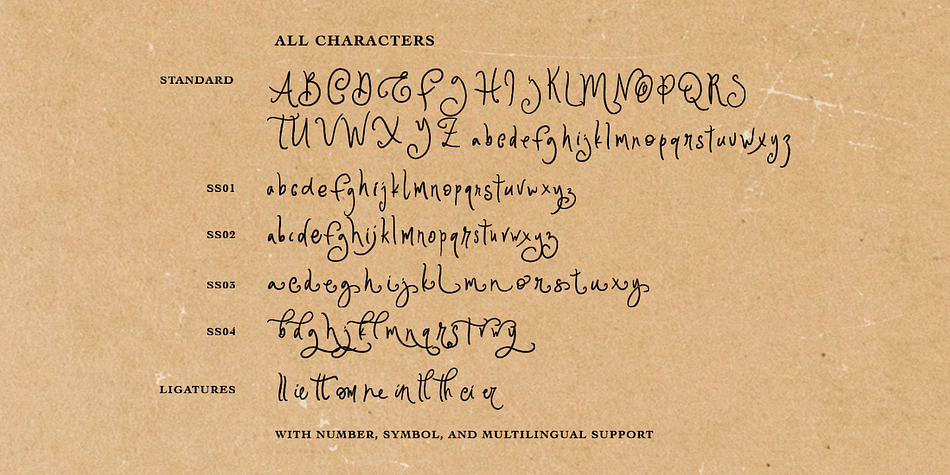 ALL CHARACTERS
STANDARD ABCDEFGHIJKLMNOPQRS
TUVWXYZ abcdefghijklmnopqrstuvwxyz
SS01 abcdefghijklmnopqrstuvwxyz
SS02 abcdefghijklmnopqrstuvwxyz
SS03 acdeghijklmnorstuxy
SS04 bdghjklmnqrstvwy
LIGATURES ll ie tt om re in tl th ci er
WITH NUMBER, SYMBOL, AND MULTILINGUAL SUPPORT